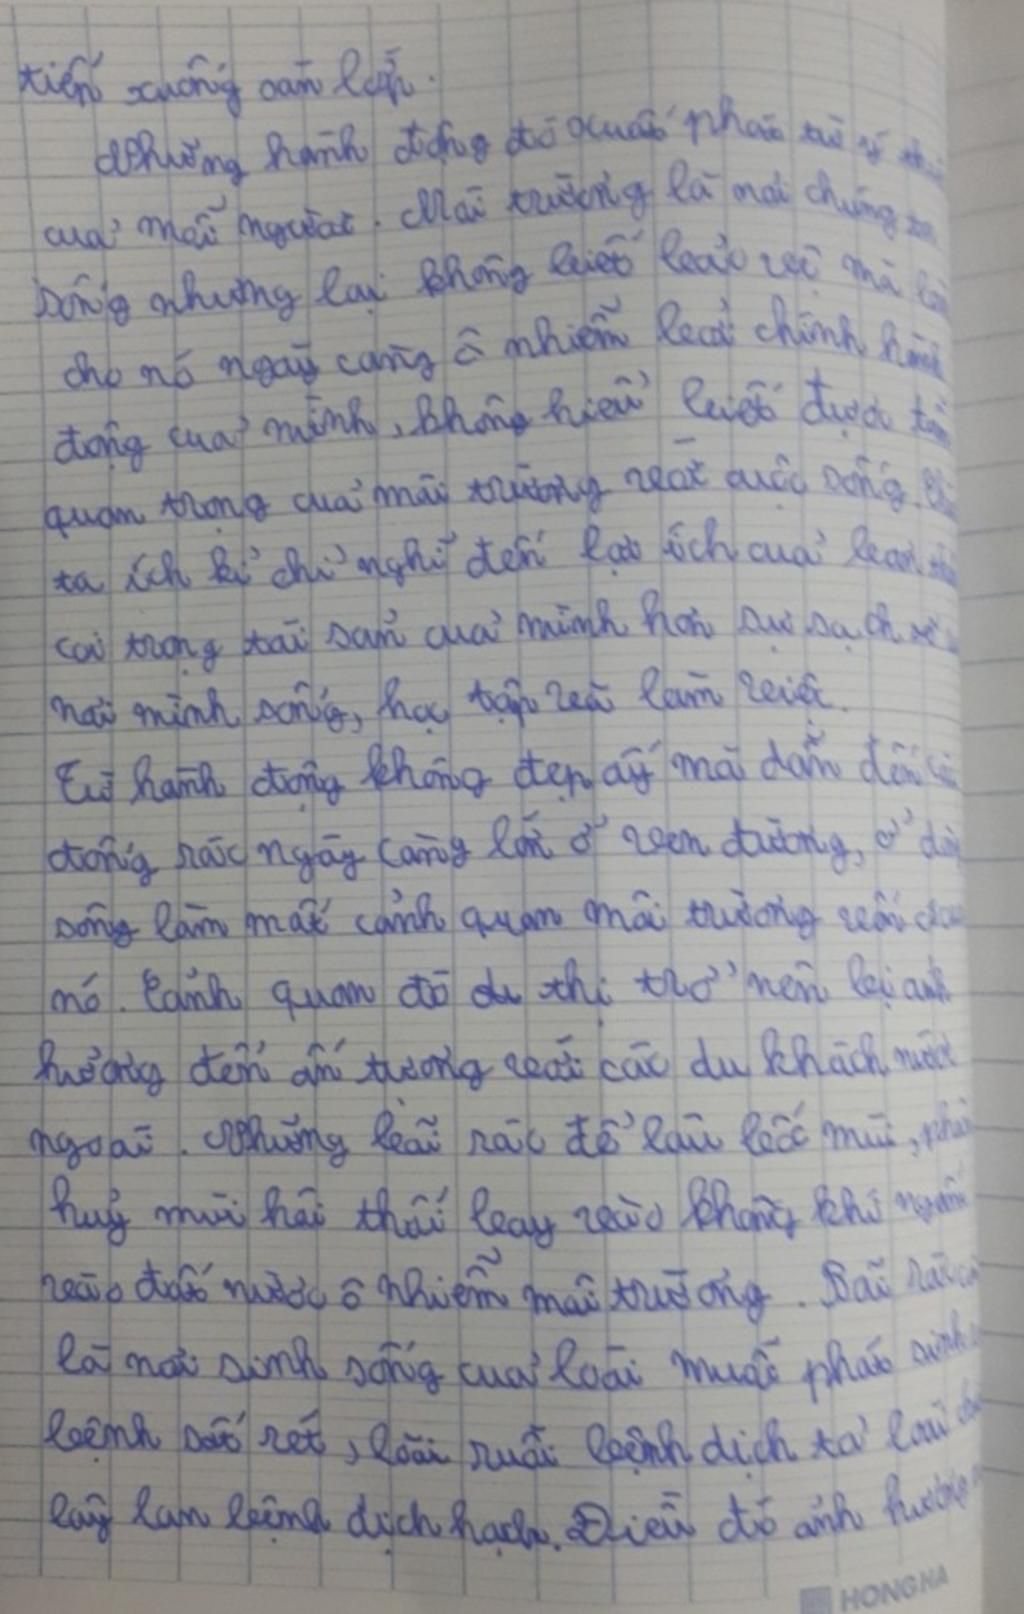 tiến xuống oam lớp.
Những hành động đó xuất phát từ ý
của mỗi người. Môi trường là nơi chúng ta
sống nhưng lại không biết bảo vệ mà làm
cho nó ngày càng ô nhiễm bởi chính hành
động của mình, không hiểu biết được tầm
quan trọng của môi trường với cuộc sống.
ta ích kỉ chỉ nghĩ đến lợi ích của bản
coi trọng tài sản của mình hơn sự sạch sẽ
nơi mình sống, học tập và làm việc.
Từ hành động không đẹp ấy mà dẫn đến
đống rác ngày càng lớn ở ven đường, ở
sông làm mất cảnh quan môi trường vốn
nó. Cảnh quan đô du thị trở nên bị ảnh
hưởng đến ấn tượng với các du khách nước
ngoài. Những bãi rác để lâu bốc mùi, phân
huỷ mùi hôi thối bay vào không khí ngấm
vào đất nước ô nhiễm môi trường. Bãi rác
là nơi sinh sống của loài muỗi phát sinh
bệnh sốt rét, loài ruồi bệnh dịch tả
lây lan bệnh dịch hạch. Điều đó ảnh hưởng
HONG HA